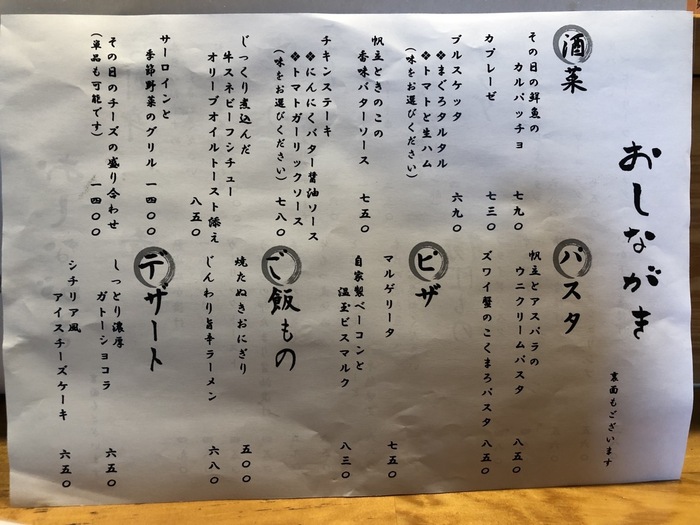 おしながき
裏面もございます
酒菜
その日の鮮魚の
カルパッチョ 七九〇
カプレーゼ 七三〇
ブルスケッタ 六九〇
❖まぐろタルタル
❖トマトと生ハム
(味をお選びください)
帆立ときのこの
香味バターソース 七五〇
チキンステーキ
❖にんにくバター醤油ソース
❖トマトガーリックソース
(味をお選びください) 七八〇
じっくり煮込んだ
牛スネビーフシチュー
オリーブオイルトースト添え 八五〇
サーロインと
季節野菜のグリル 一四〇〇
その日のチーズの盛り合わせ 一四〇〇
(単品も可能です)
パスタ
帆立とアスパラの
ウニクリームパスタ 八五〇
ズワイ蟹のこくまろパスタ 八五〇
ピザ
マルゲリータ 七五〇
自家製ベーコンと
温玉ビスマルク 八三〇
ご飯もの
焼たぬきおにぎり 五〇〇
じんわり旨辛ラーメン 六八〇
デザート
しっとり濃厚
ガトーショコラ 六五〇
シチリア風
アイスチーズケーキ 六五〇